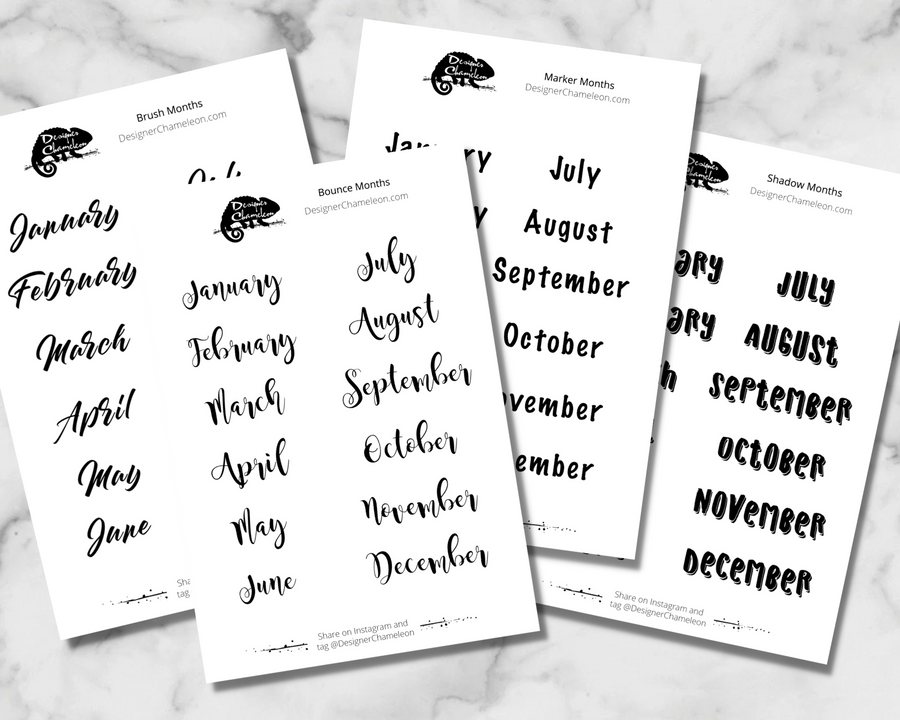 Designer
Chameleon
Brush Months
DesignerChameleon.com
July
January
February
March
April
May
June
Designer
Chameleon
Bounce Months
DesignerChameleon.com
January
February
March
April
May
June
July
August
September
October
November
December
Share on Instagram and
tag @DesignerChameleon
Designer
Chameleon
Marker Months
DesignerChameleon.com
July
August
September
October
vember
ember
Shadow Months
DesignerChameleon.com
ARY
ARY
H
JULY
AUGUST
SEPTEMBER
OCTOBER
NOVEMBER
DECEMBER
Share on Instagram and
tag @DesignerChameleon